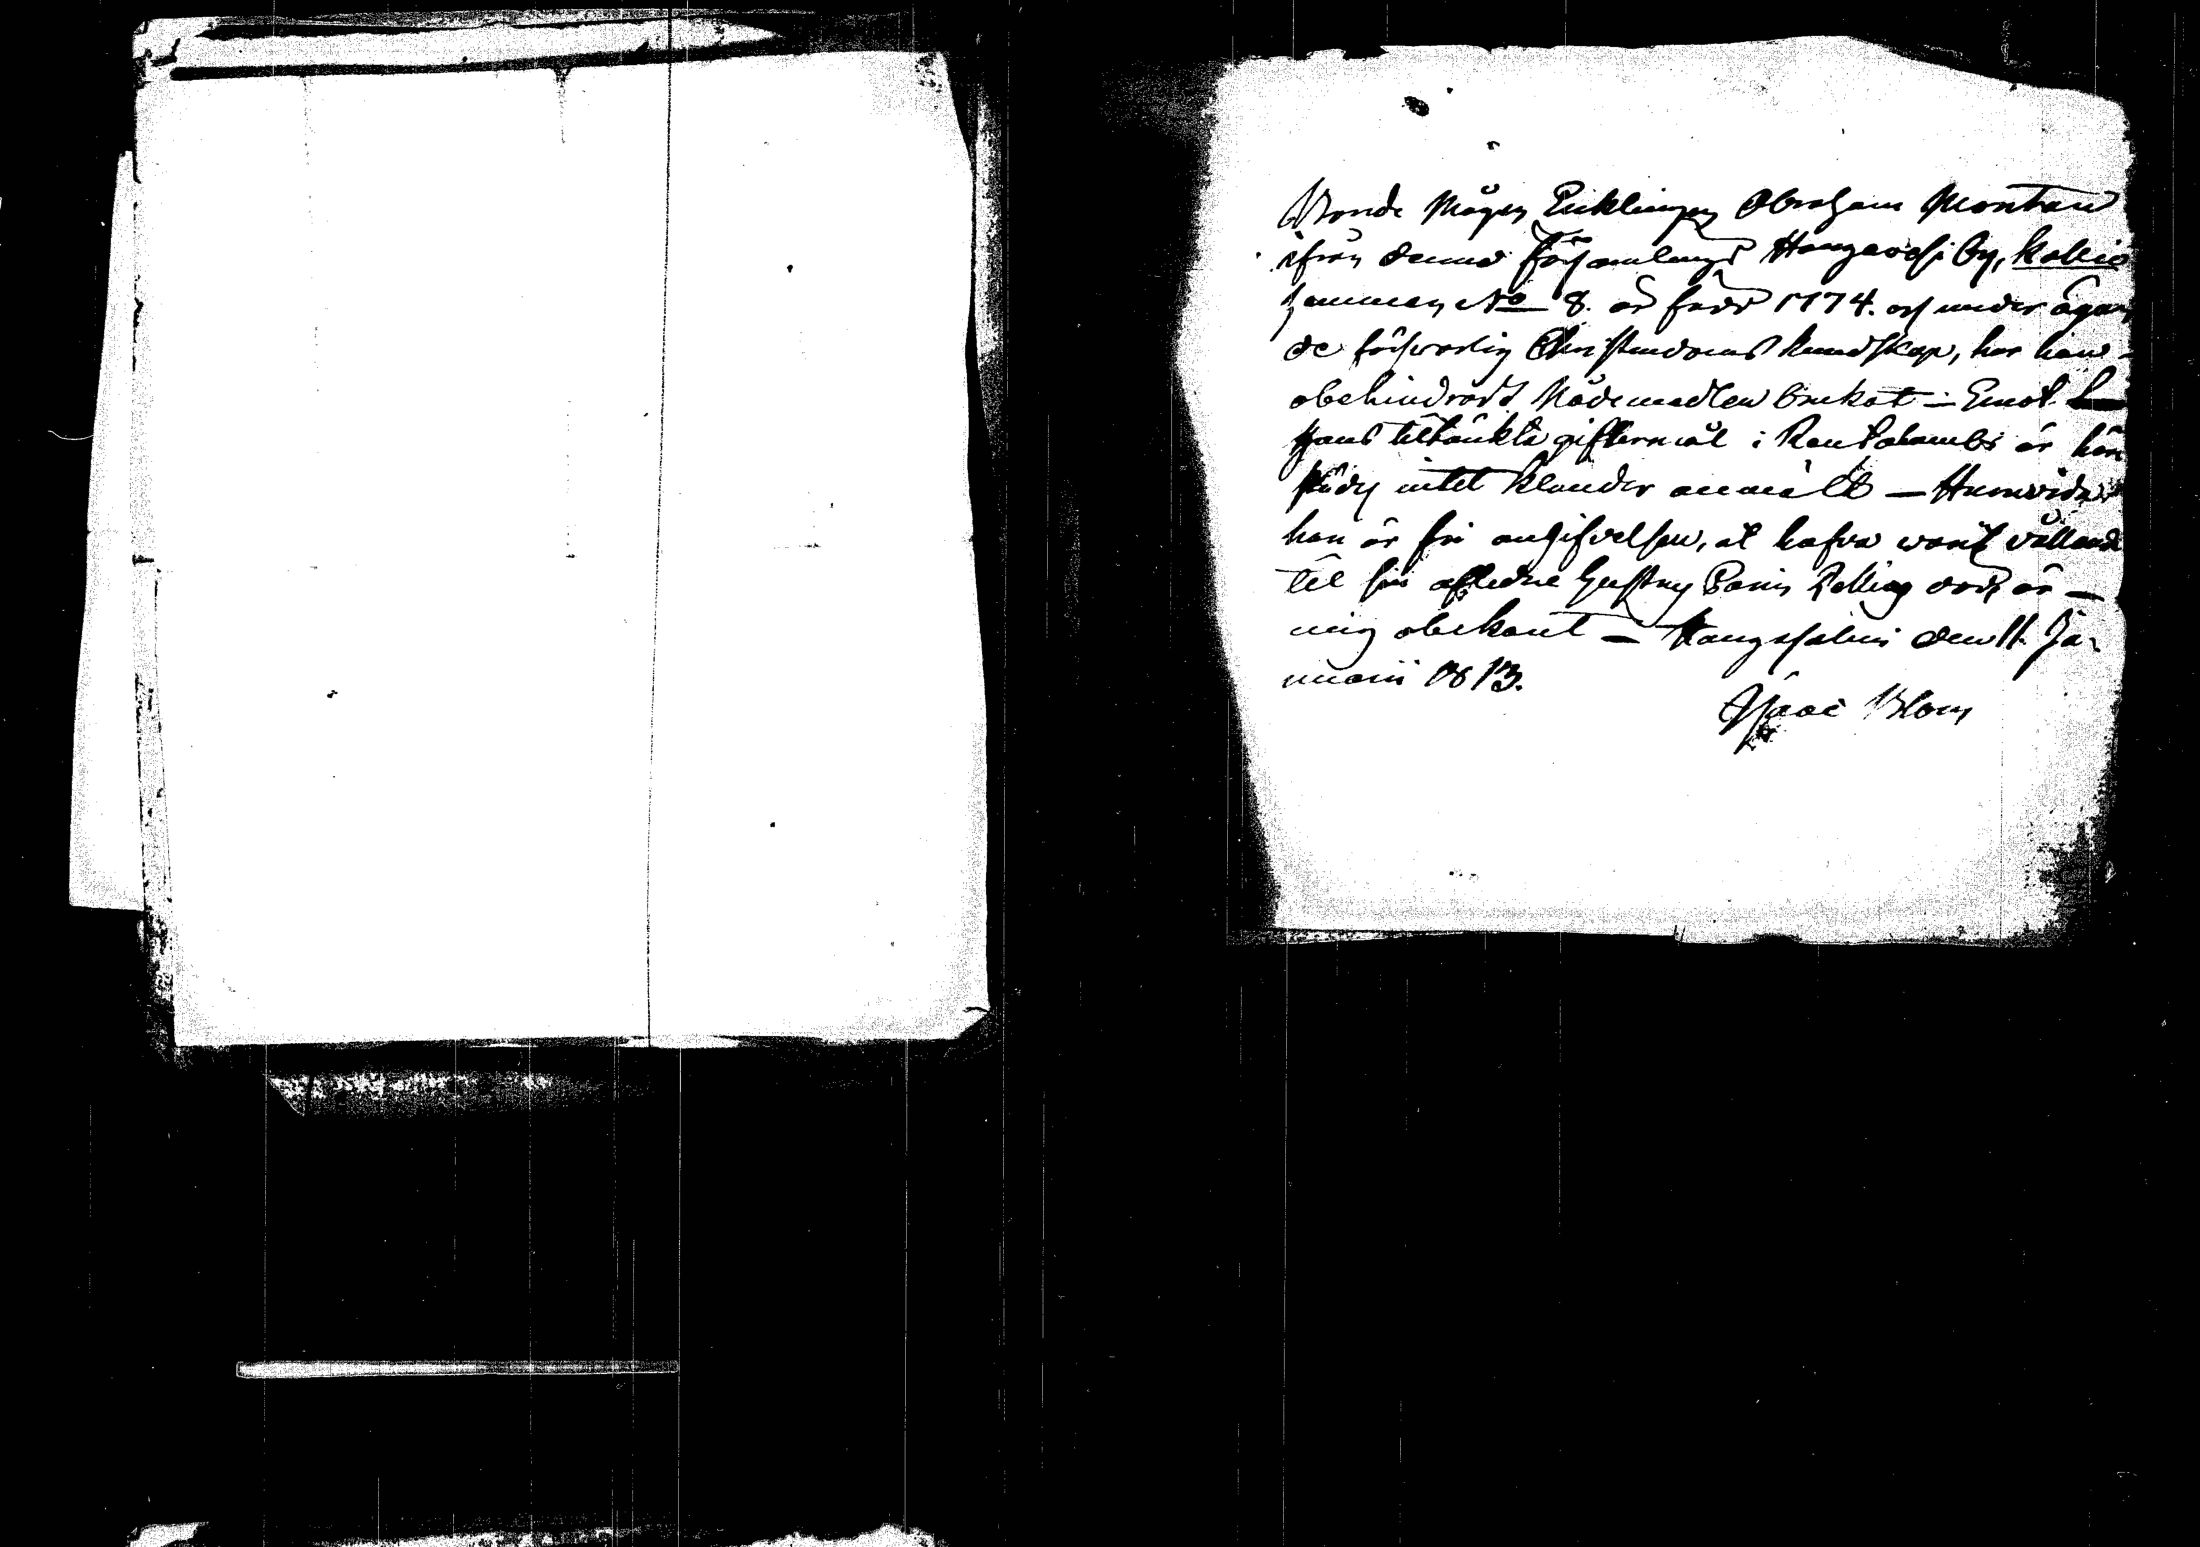 Bonde Mågen Enklingen Abraham Montan
ifrån denna Församlings Hangavesi by, Kollio
hemman No 8. är född 1774. och under ägan
de försvarlig Christendoms kundskap, har han
obehindradt Nådemedlen brukat – Emot
Hans tiltänkta giftermål i Rautalambi är här
städes intet klander anmält – Huruvida
han är fri angifvelsen, at hafva varit vållande
til sin aflidne hustru Karin död är –
mig obekant – Kangasialmi den 11. Ja-
nuarii 1813.
Isaac Blom